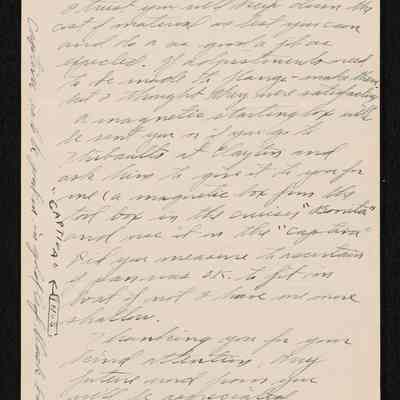 I trust you will keep down the
cost of material as best you can
and do a as good a job as
expected. If adjustments need
to be made to flange - make them
but I thought they were satisfactory
A magnetic starting box will
be sent you or if you go to
Thibaults at Clayton and
ask him to give it to you for
me (a magnetic box from the
tool box in the cruiser "Bonita"
and use it in the "Captiva"
Did you measure to
if pan was O.K. to fit in
boat if not to have me more
shallow.
Thanking you for your
kind attention. Any
future word from you
will be appreciated
Captiva is to be in
"CAPTIVA"